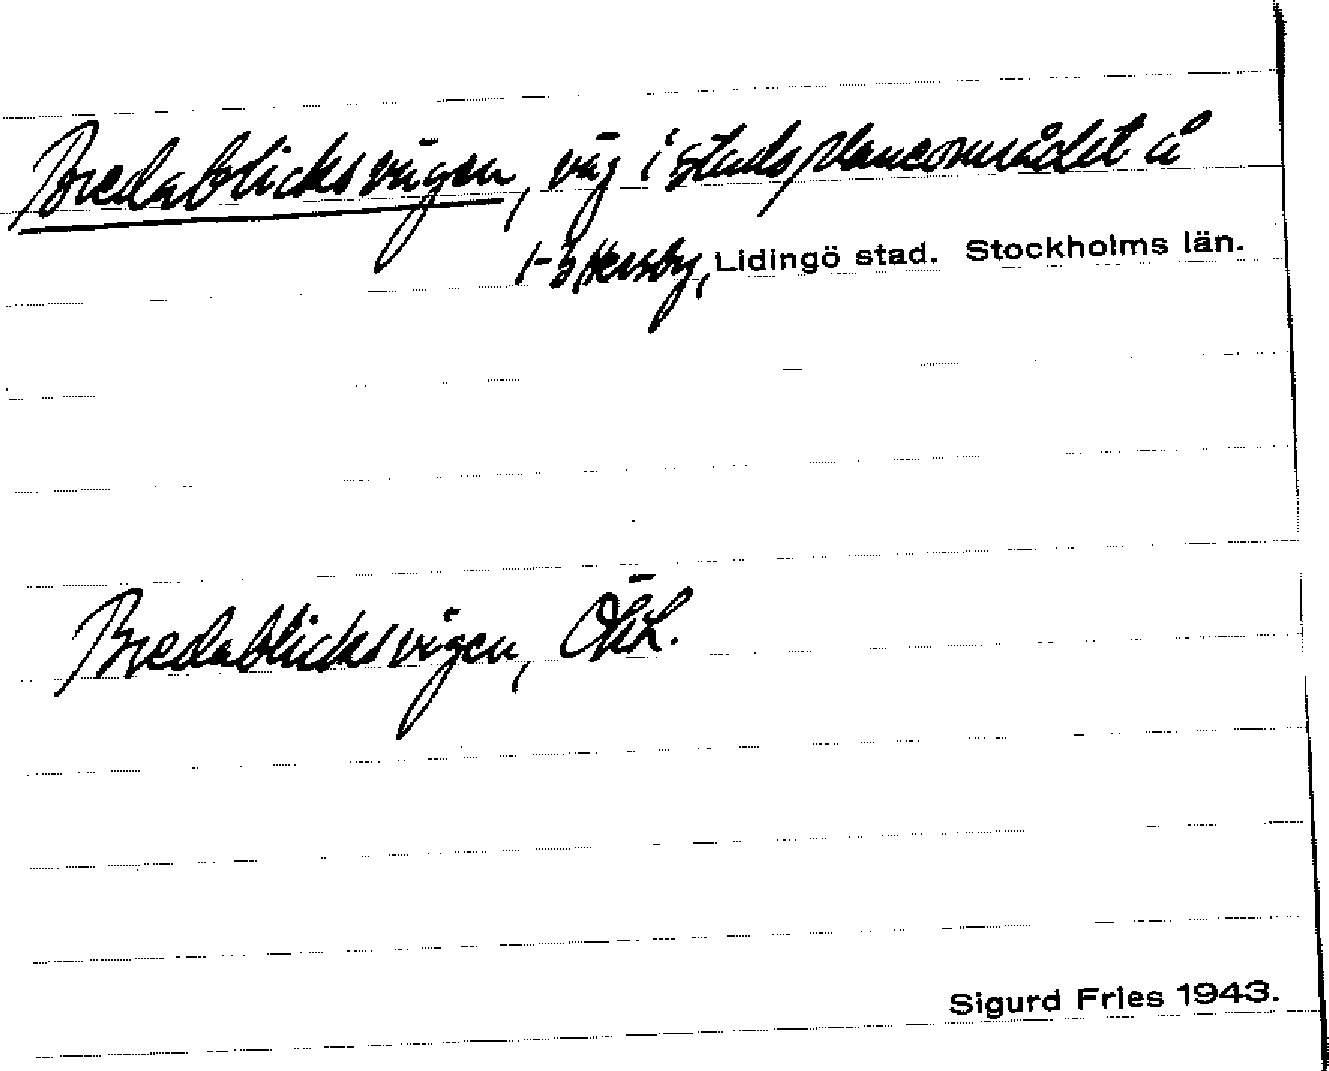 Bredablicksvägen, väg i stadsplaneområdet å
1-3 Hersby, Lidingö stad. Stockholms län.
Bredablicksvägen,
Sigurd Fries 1943.